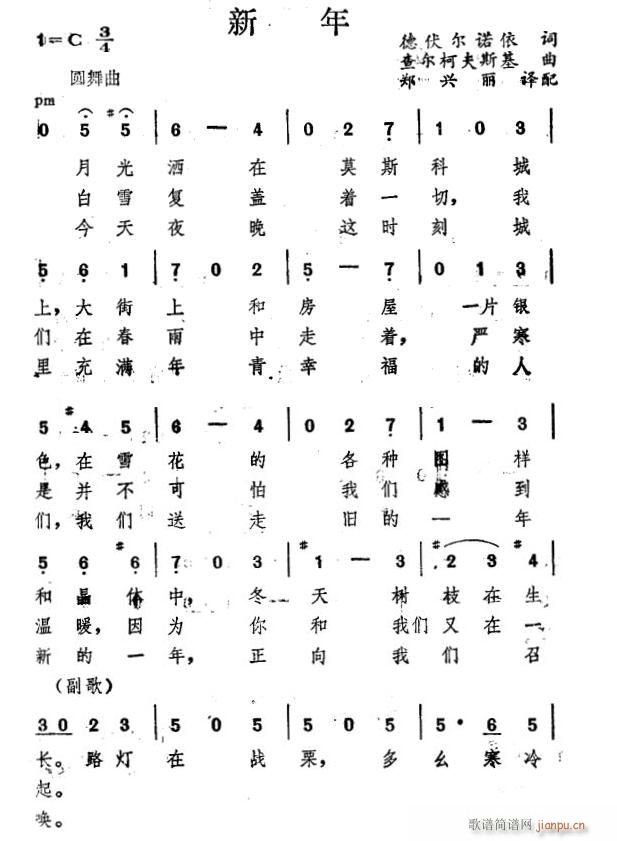 新 年
1=C 3/4
德伏尔诺依 词
查尔柯夫斯基 曲
郑 兴 丽 译配
圆舞曲
pm
0 5 #5 | 6 — 4 | 0 2 7 | 1 0 3
月光洒在 莫斯科城
白雪复盖 着一切，我
今天夜晚 这时刻城
5 6 1 | 7 0 2 | 5 — 7 | 0 1 3
上，大街上 和房屋 一片银
们在春雨 中走着，严寒
里充满年 青幸福 的人
5 #4 5 | 6 — 4 | 0 2 7 | 1 — 3
色，在雪花 的 各种图样
是并不可 怕 我们感到
们，我们送 走 旧的一年
5 6 #6 | 7 0 3 | #1 — 3 | #2 3 4
和晶体中，冬天 树枝在生
温暖，因为 你和 我们又在一
新的一年，正向 我们召
（副歌）
3 0 2 3 | 5 0 5 | 5 0 5 | 5 · 6 5
长。路灯在 战栗，多么寒冷
起。
唤。
歌谱简谱网
jianpu.cn